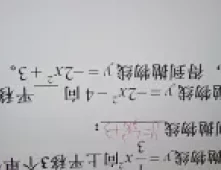 抛物线 y = \frac{1}{3}x² 向上平移 3 个单
到抛物线____；
抛物线 y = -2x² - 4 向____平移
，得到抛物线 y = -2x² + 3。